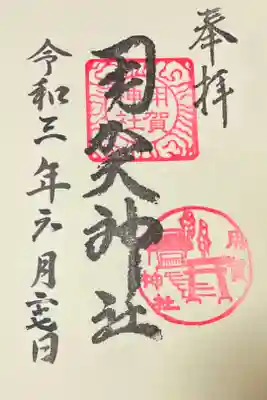 奉拝
用賀神社
令和三年六月二七日
用賀神社
用賀神社